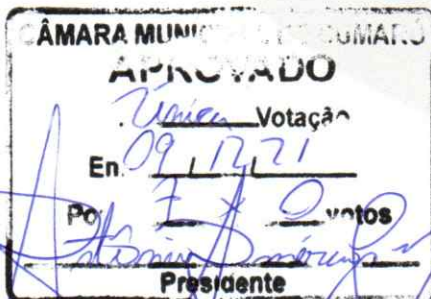 CÂMARA MUNICIPAL DE CUMARÚ
APROVADO
Única Votação
Em 09 / 12 / 21
Por 7 x 0 votos
Presidente